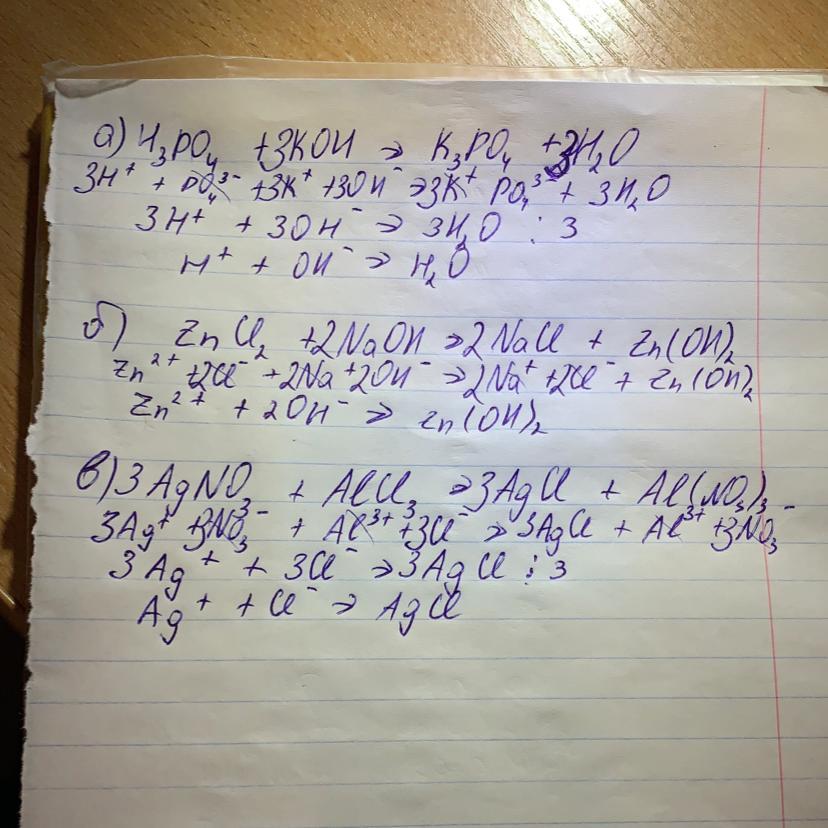 а) H₃PO₄ +3KOH → K₃PO₄ +3H₂O
3H⁺ + PO₄³⁻ +3K⁺ +3OH⁻ → 3K⁺ PO₄³⁻ + 3H₂O
3H⁺ + 3OH⁻ → 3H₂O : 3
H⁺ + OH⁻ → H₂O
б) ZnCl₂ +2NaOH → 2NaCl + Zn(OH)₂
Zn²⁺ +2Cl⁻ +2Na⁺ 2OH⁻ → 2Na⁺ +2Cl⁻ + Zn(OH)₂
Zn²⁺ + 2OH⁻ → Zn(OH)₂
в) 3AgNO₃ + AlCl₃ → 3AgCl + Al(NO₃)₃
3Ag⁺ +3NO₃⁻ + Al³⁺ +3Cl⁻ → 3AgCl + Al³⁺ +3NO₃⁻
3Ag⁺ + 3Cl⁻ → 3AgCl : 3
Ag⁺ + Cl⁻ → AgCl